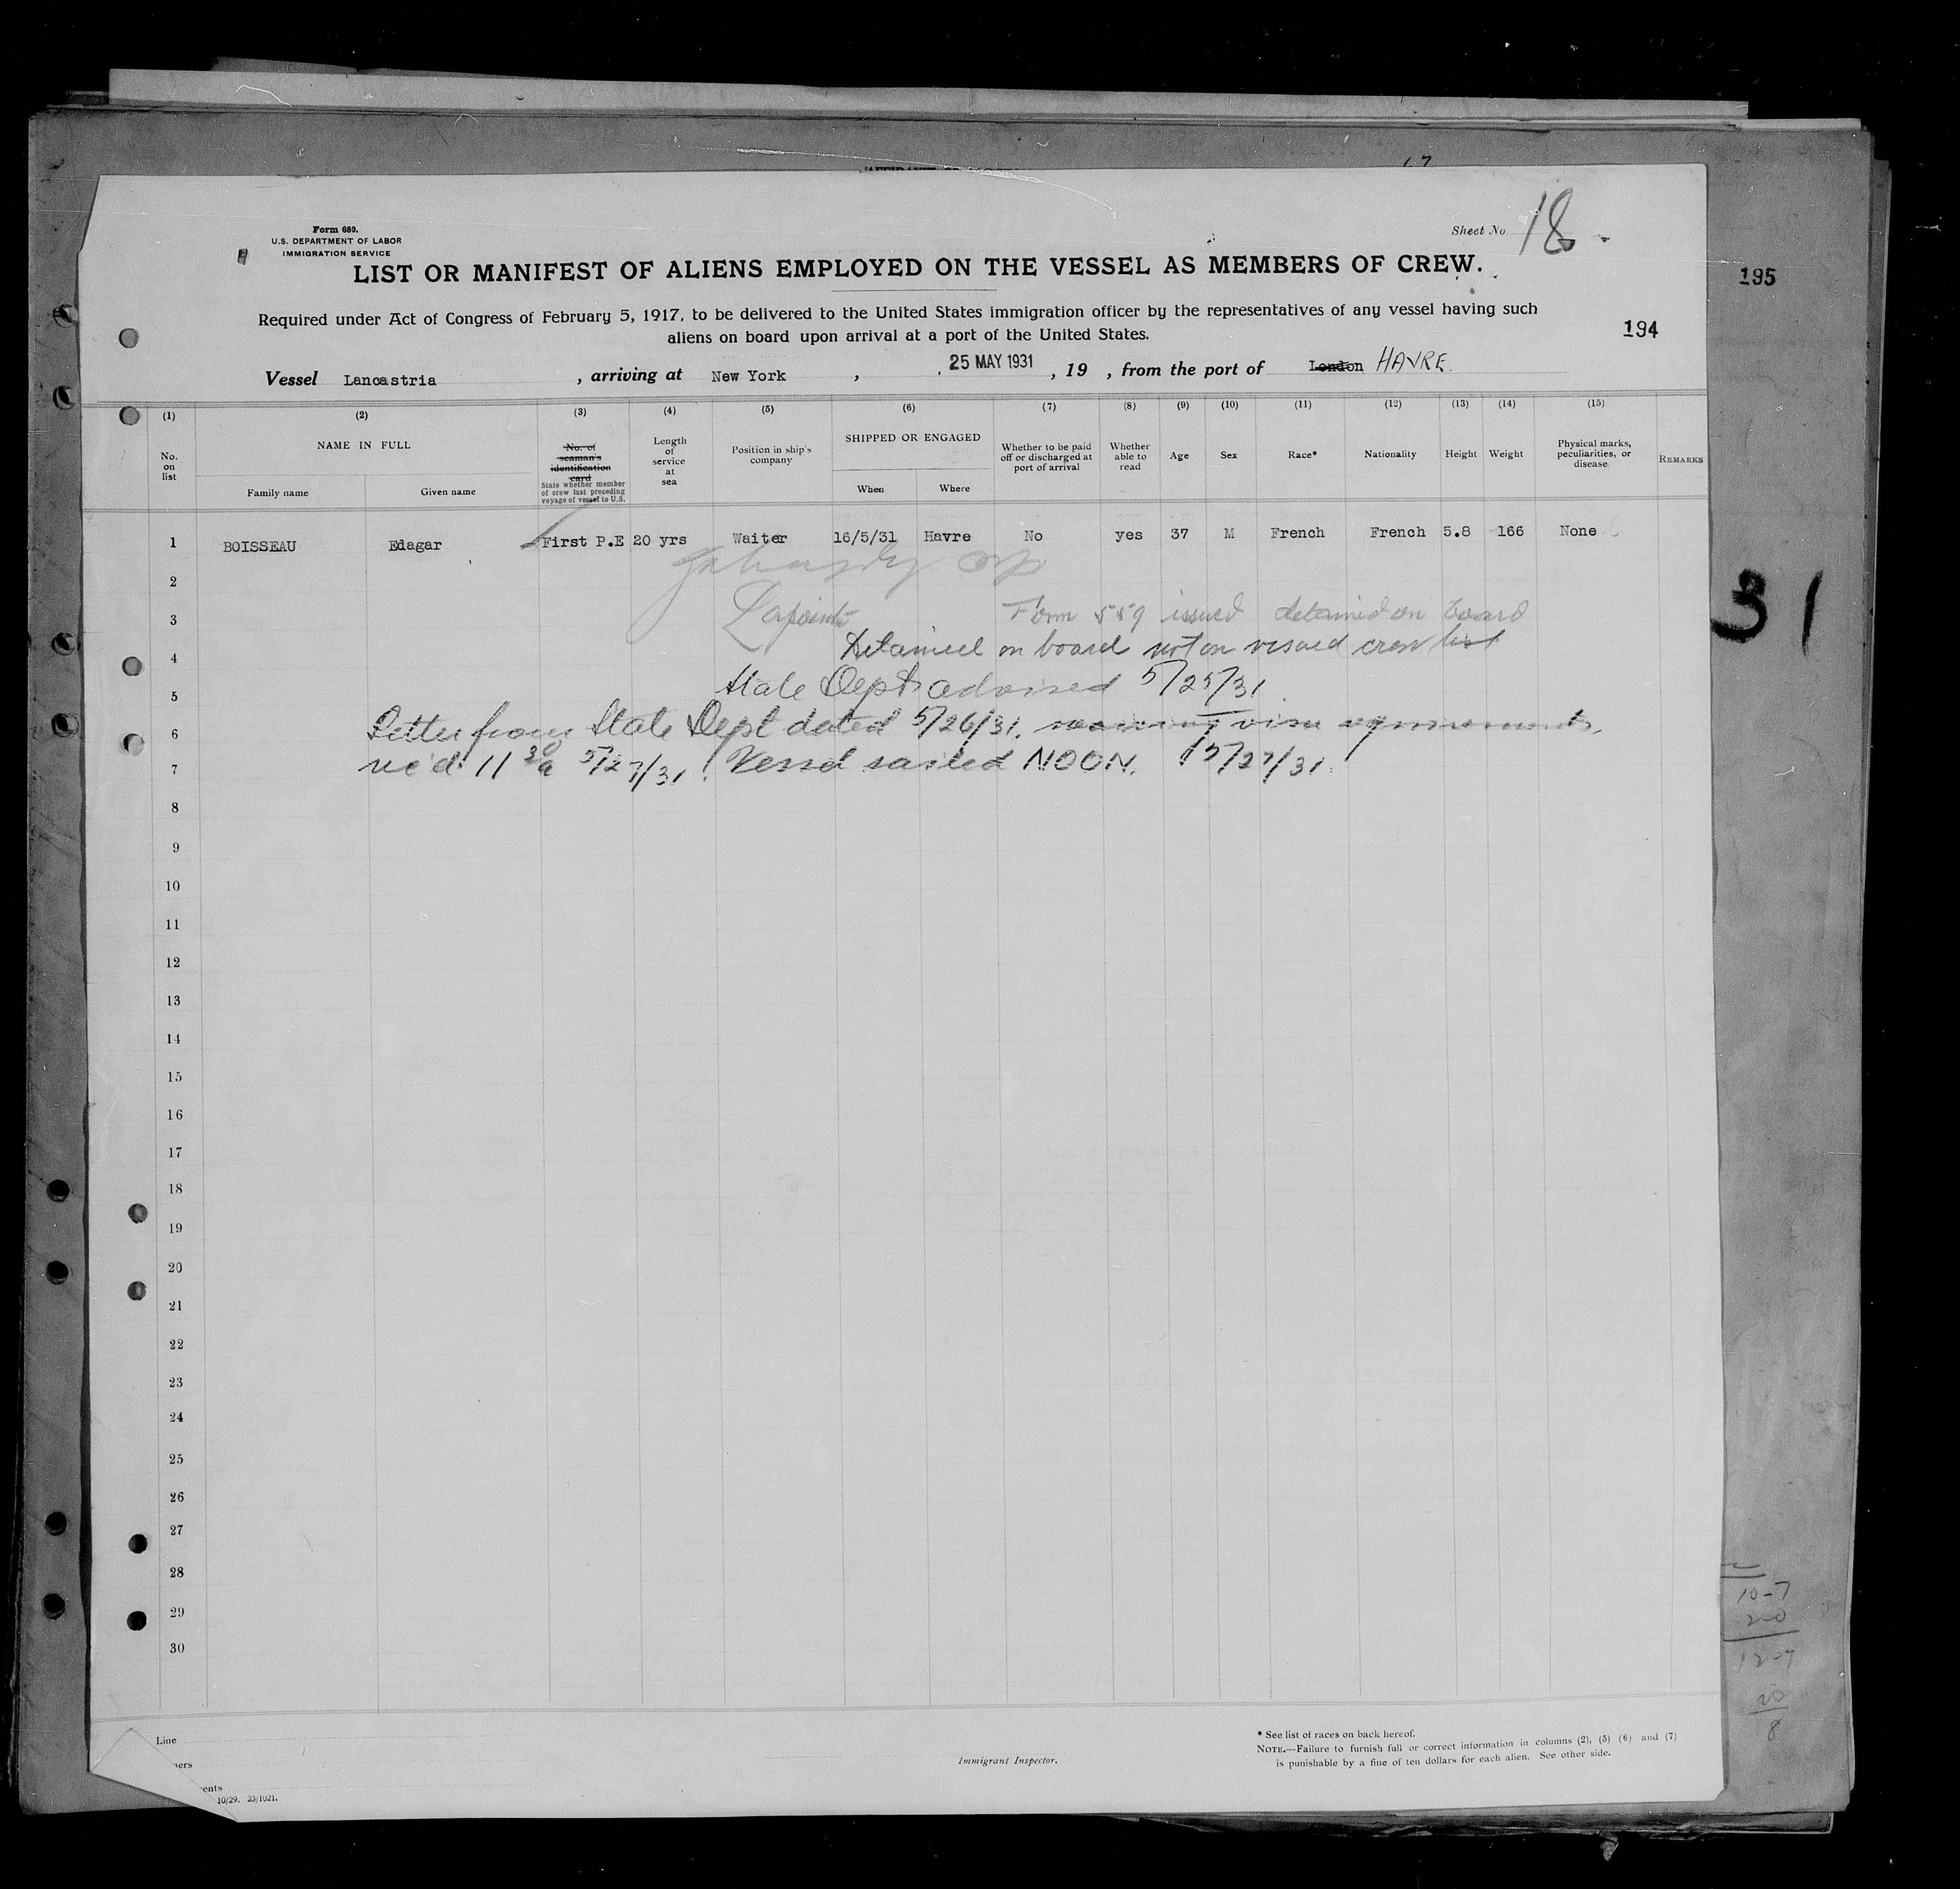 Form 680.
U.S. DEPARTMENT OF LABOR
IMMIGRATION SERVICE
Sheet No 18
195
LIST OR MANIFEST OF ALIENS EMPLOYED ON THE VESSEL AS MEMBERS OF CREW.
Required under Act of Congress of February 5, 1917, to be delivered to the United States immigration officer by the representatives of any vessel having such
aliens on board upon arrival at a port of the United States.
194
Vessel Lancastria, arriving at New York, 25 MAY 1931, 19 , from the port of London HAVRE.
(1) (2) (3) (4) (5) (6) (7) (8) (9) (10) (11) (12) (13) (14) (15)
No. on list
NAME IN FULL
Family name
Given name
No. of seaman's identification card
State whether member of crew last preceding voyage of vessel to U.S.
Length of service at sea
Position in ship's company
SHIPPED OR ENGAGED
When
Where
Whether to be paid off or discharged at port of arrival
Whether able to read
Age
Sex
Race*
Nationality
Height
Weight
Physical marks, peculiarities, or disease
REMARKS
1 BOISSEAU Edagar First P.E 20 yrs Waiter 16/5/31 Havre No yes 37 M French French 5.8 166 None
2
3 Lapointe Form 559 issued detained on board
4 Detained on board not on visaed crew list
5 State Dept advised 5/25/31
6 Letter from State Dept dated 5/26/31, waiving visa requirements,
7 rec'd 11 30 a 5/27/31. Vessel sailed NOON. 5/27/31.
31
8
9
10
11
12
13
14
15
16
17
18
19
20
21
22
23
24
25
26
27
28
29
30
10-7
20
12-7
20
8
Line
ners
ents
10/29. 23/1021.
Immigrant Inspector.
* See list of races on back hereof.
NOTE.—Failure to furnish full or correct information in columns (2), (5) (6) and (7)
is punishable by a fine of ten dollars for each alien. See other side.